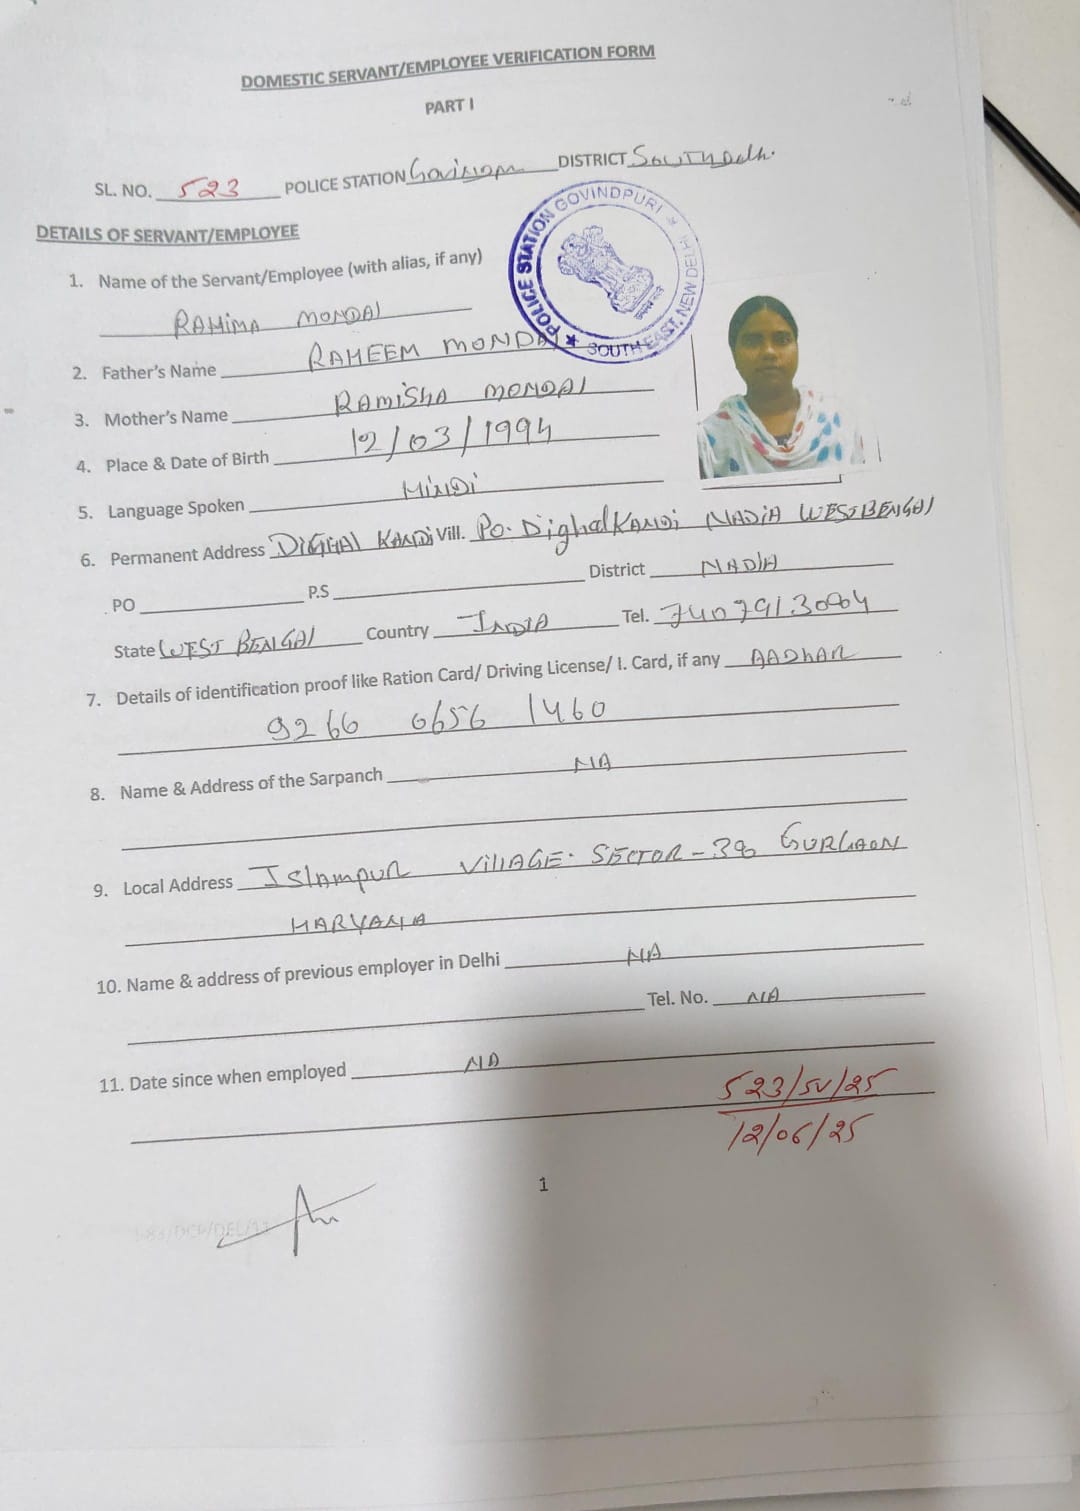 DOMESTIC SERVANT/EMPLOYEE VERIFICATION FORM
PART I
SL. NO. 523 POLICE STATION DISTRICT South Delhi
POLICE STATION GOVINDPURI SOUTH EAST, NEW DELHI
DETAILS OF SERVANT/EMPLOYEE
1. Name of the Servant/Employee (with alias, if any)
RAHIMA MONDAL
2. Father's Name RAHEEM MONDAL
3. Mother's Name RAMISHA MONDAL
4. Place & Date of Birth 12/03/1994
5. Language Spoken HINDI
6. Permanent Address DIGHAL KANDI Vill. Po. Dighal KANDI NADIA WEST BENGAL
PO P.S District NADIA
State WEST BENGAL Country INDIA Tel.
7. Details of identification proof like Ration Card/ Driving License/ I. Card, if any AADHAR
9266 0656 1460
8. Name & Address of the Sarpanch NA
9. Local Address Islampur VILLAGE. SECTOR-38 GURGAON
HARYANA
10. Name & address of previous employer in Delhi NA
Tel. No. NA
11. Date since when employed NA
523/SV/25
12/06/25
1